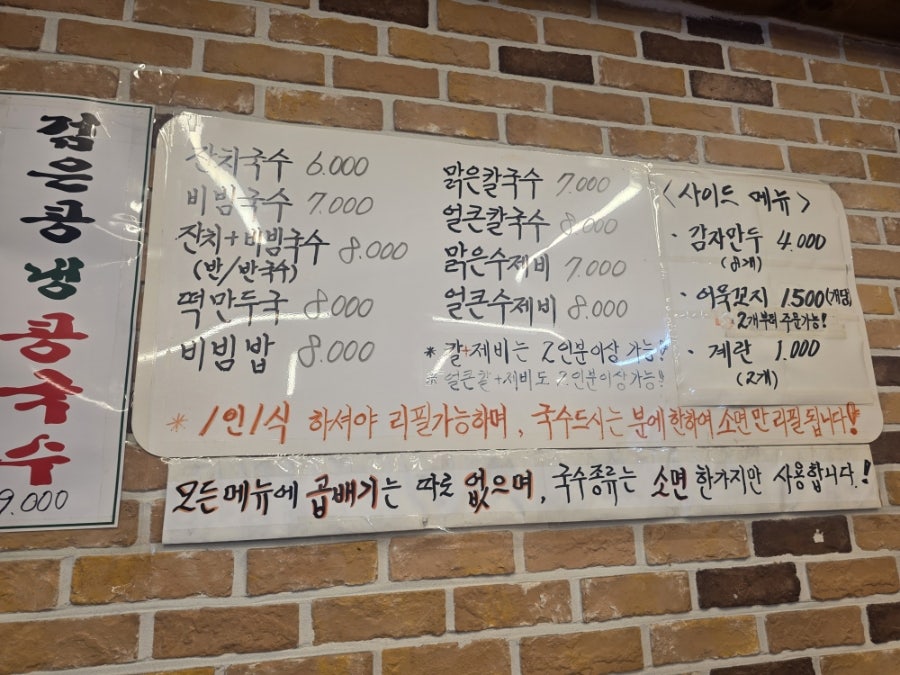 검은콩냉콩국수
9.000
잔치국수 6.000
비빔국수 7.000
잔치+비빔국수 8.000
(반/반국수)
떡만두국 8.000
비빔밥 8.000
맑은칼국수 7.000
얼큰칼국수 8.000
맑은수제비 7.000
얼큰수제비 8.000
* 칼+제비는 2인분이상 가능!
* 얼큰칼+제비도 2인분이상가능!!
<사이드 메뉴>
· 감자만두 4.000
· 어묵꼬지 1.500(개당)
2개부터 주문가능!
· 계란 1.000
(2개)
* 1인1식 하셔야 리필가능하며, 국수드시는 분에 한하여 소면만 리필 됩니다!
모든메뉴에 곱배기는 따로 없으며, 국수종류는 소면 한가지만 사용합니다.!